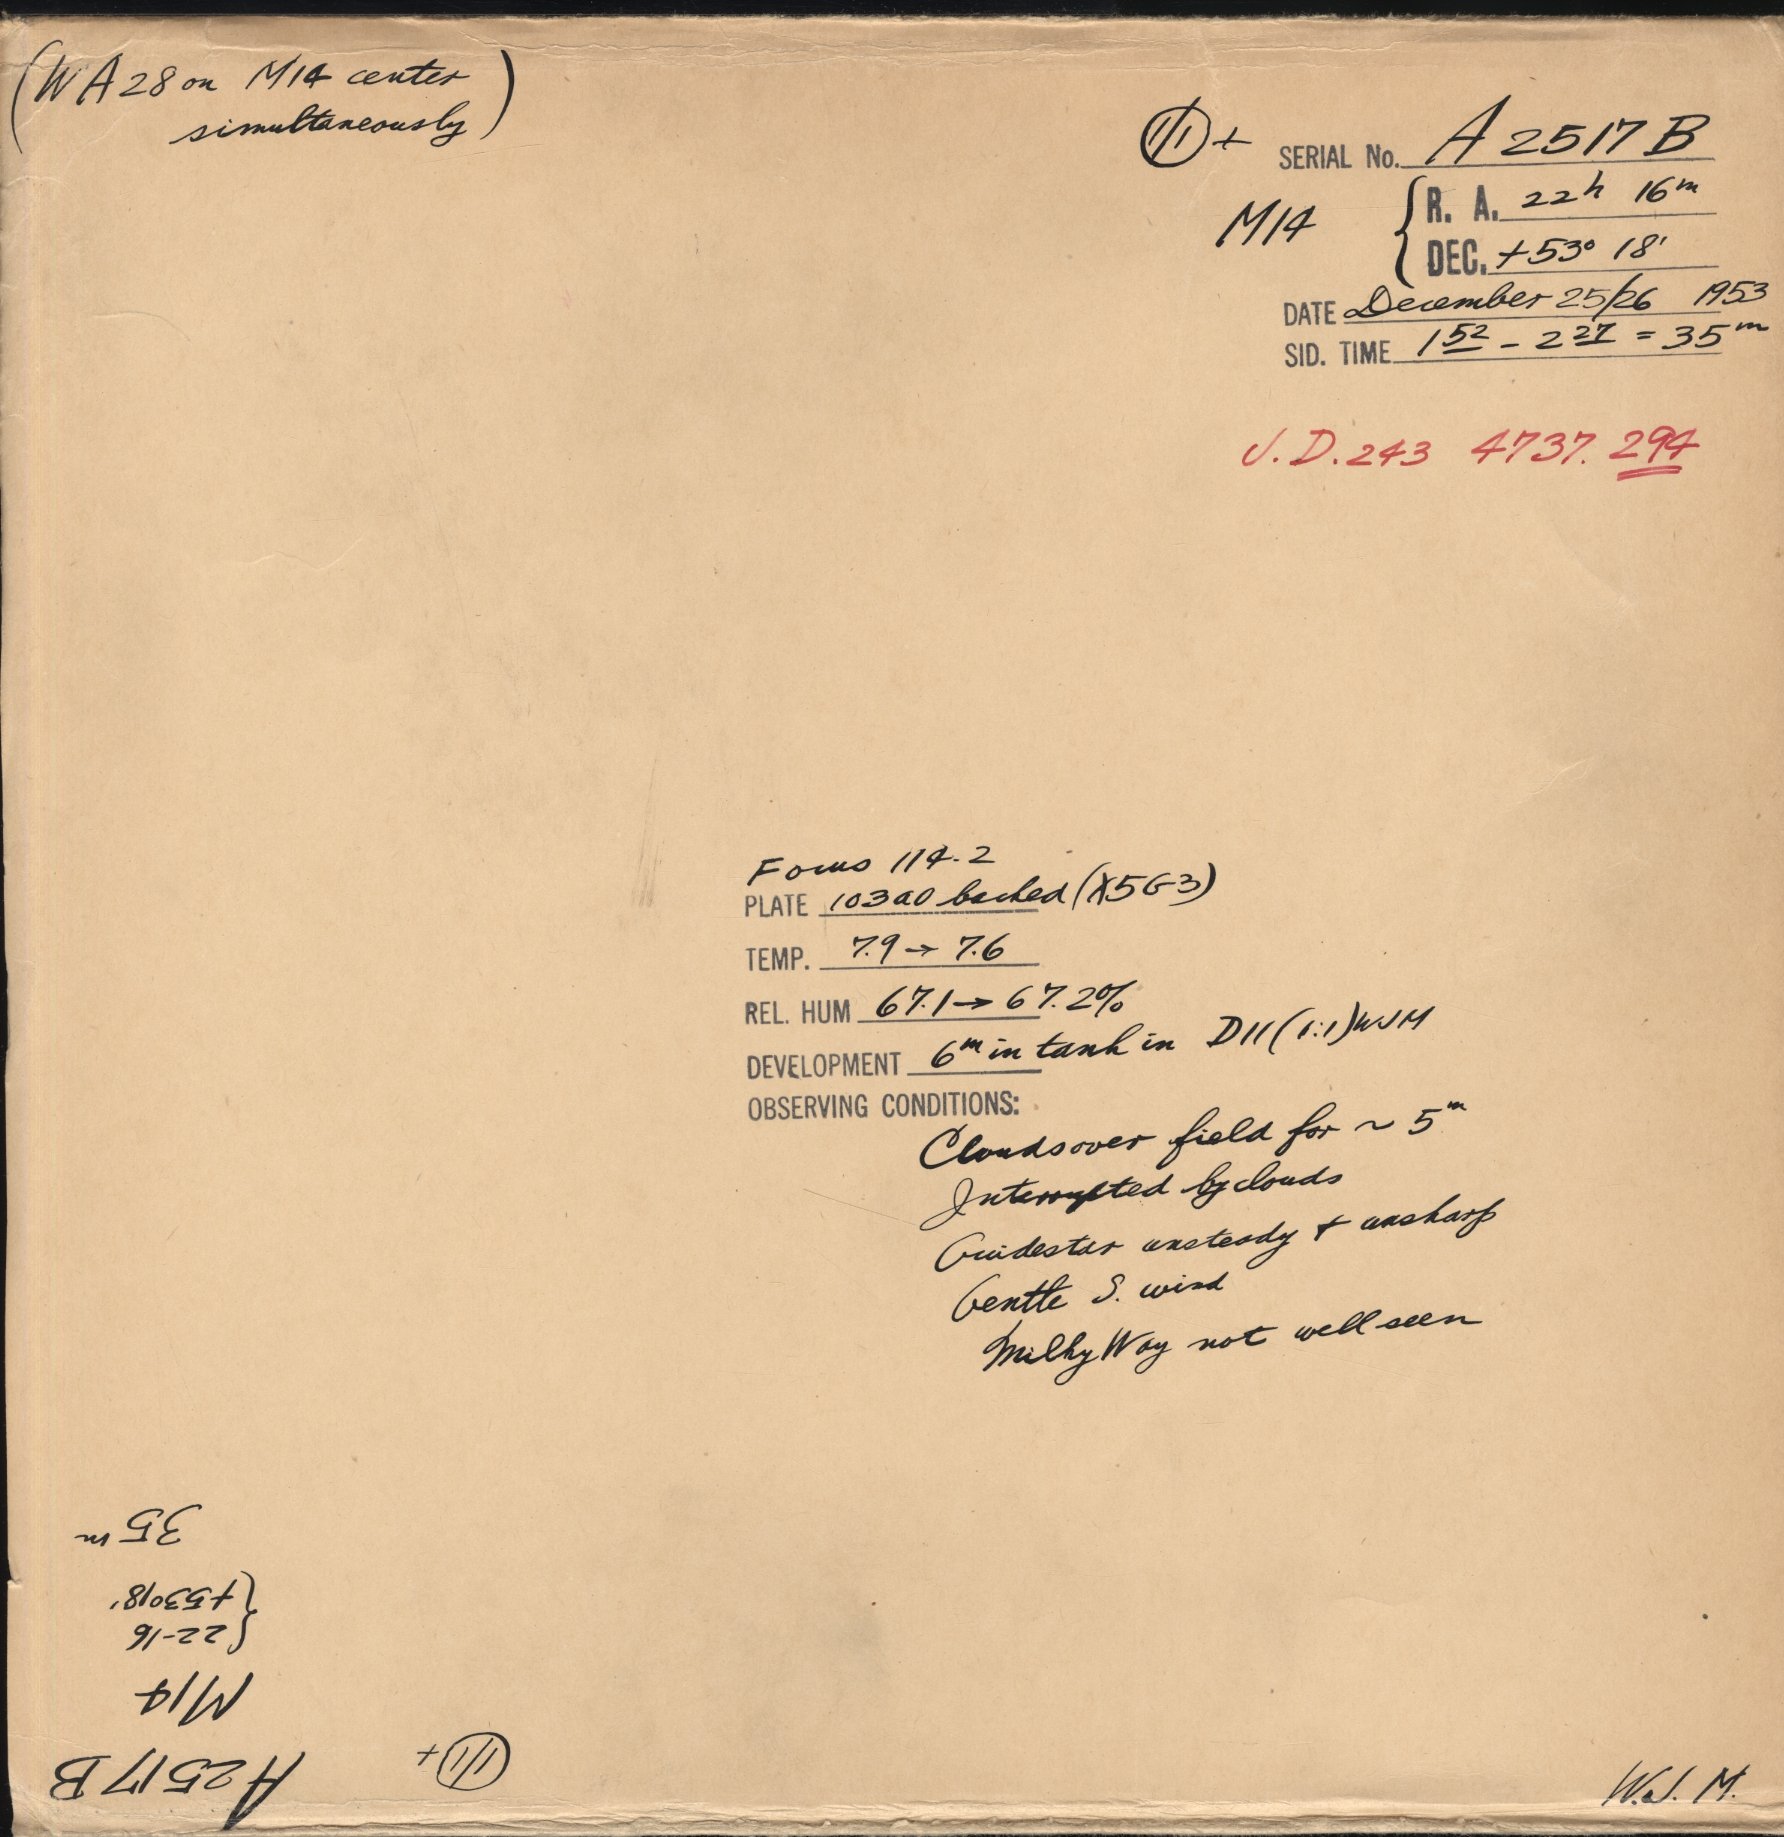 (WA28 on M14 center
simultaneously)
III +
SERIAL No. A 2517 B
M14 { R. A. 22h 16m
DEC. +53° 18'
DATE December 25/26 1953
SID. TIME 1 52 - 2 27 = 35m
J. D. 243 4737. 294
Focus 114.2
PLATE 103aO backed (X5G3)
TEMP. 7.9 → 7.6
REL. HUM 67.1 → 67.2%
DEVELOPMENT 6m in tank in D11 (1:1) WJM
OBSERVING CONDITIONS:
Clouds over field for ~ 5m
Interrupted by clouds
Guidestar unsteady + unsharp
Gentle S. wind
Milky Way not well seen
W.J.M.
III +
A2517B
M14
{ 22-16
+53°18'
35m